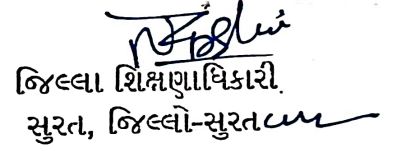 જિલ્લા શિક્ષણાધિકારી.
સુરત, જિલ્લો-સુરત